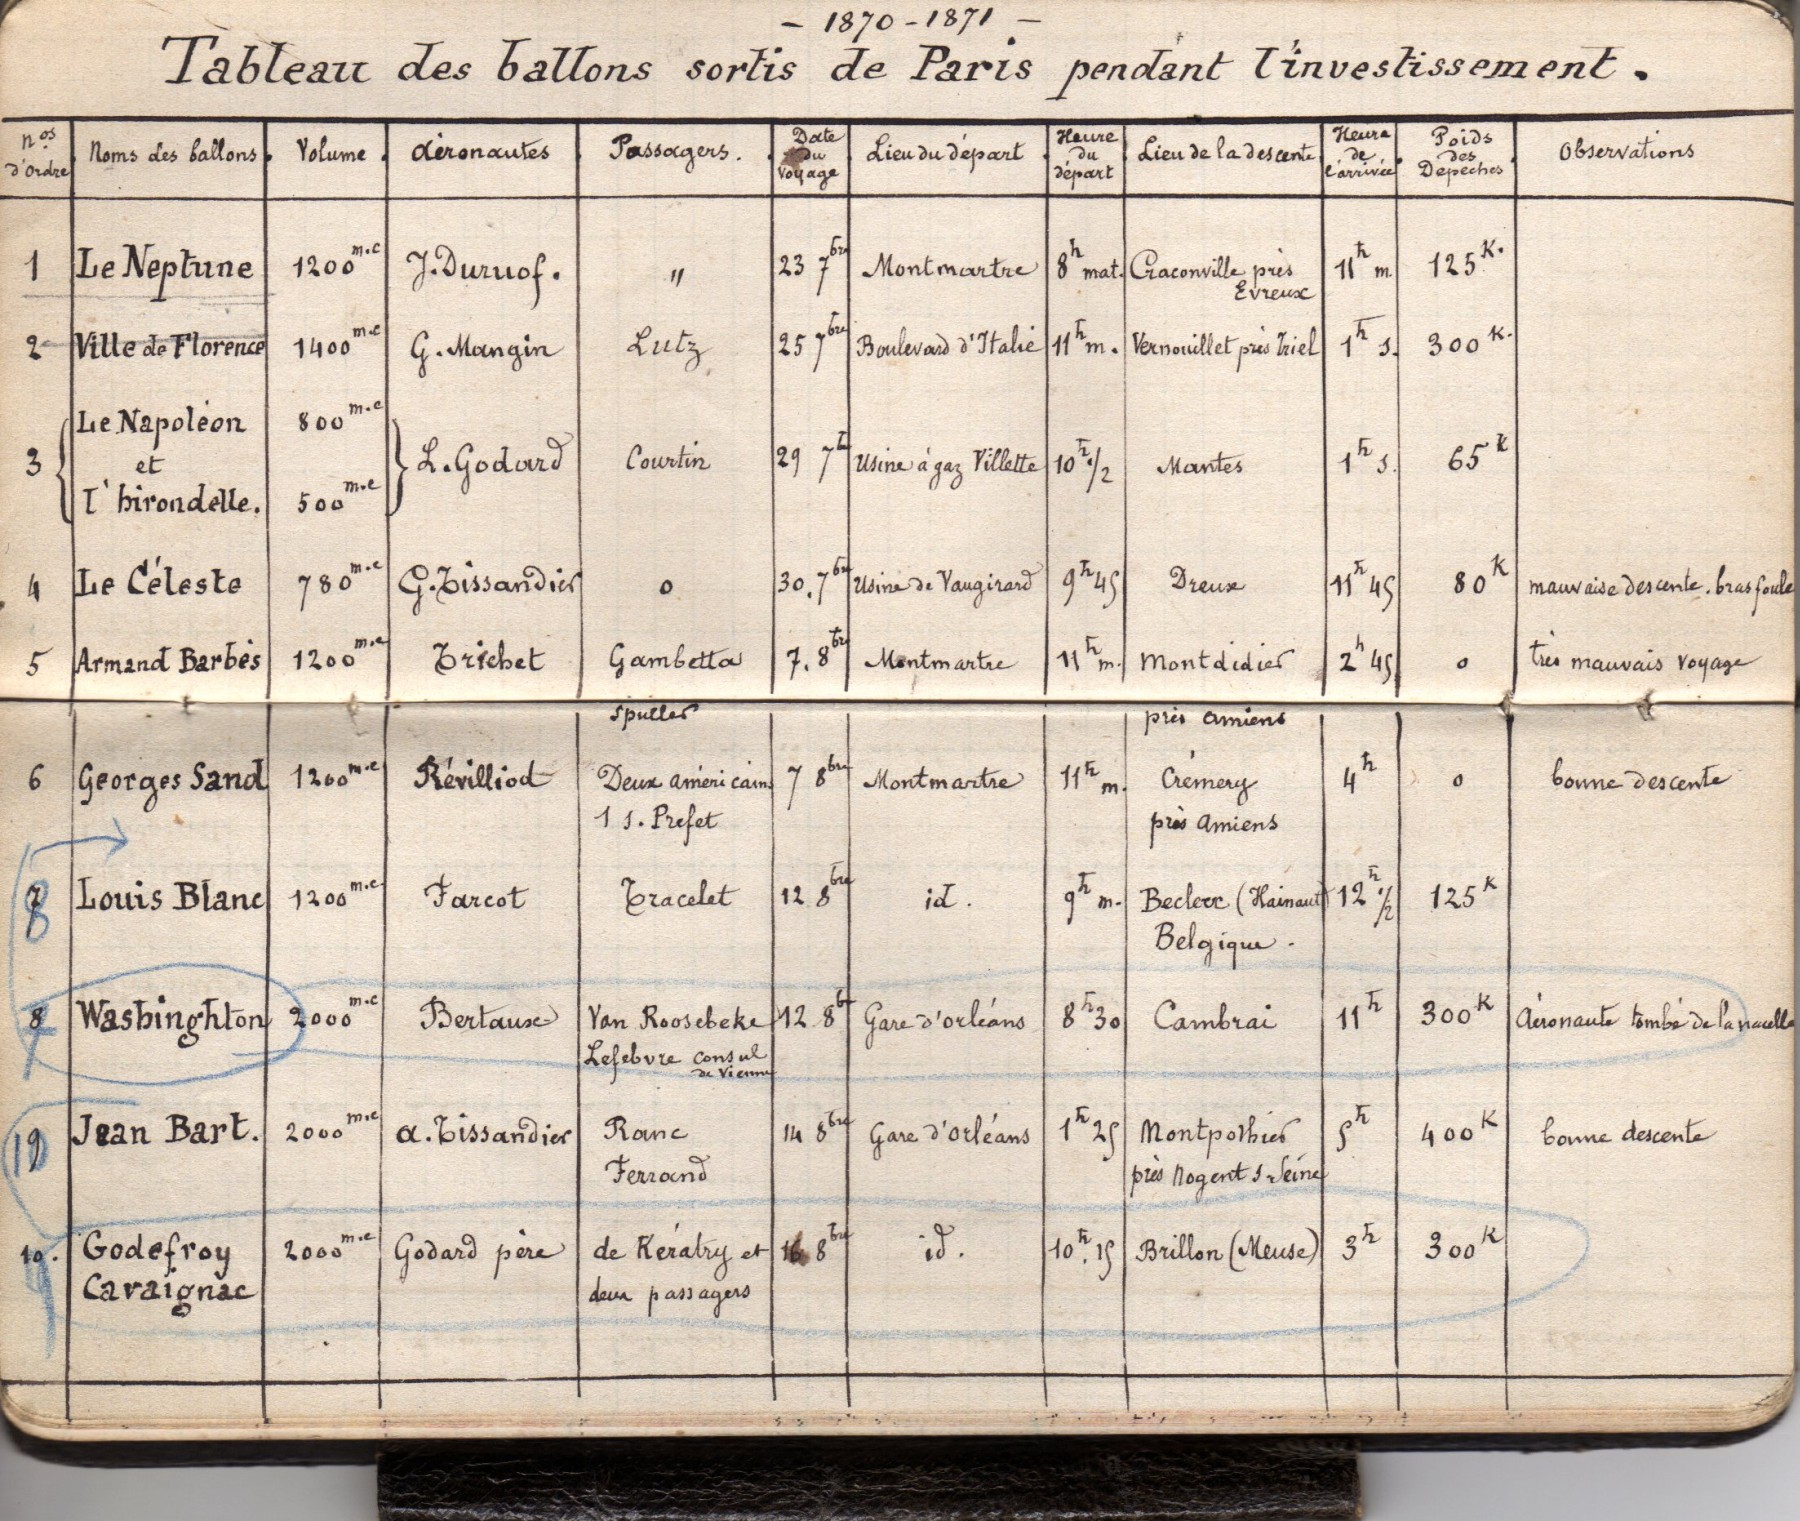 – 1870-1871 –
Tableau des ballons sortis de Paris pendant l'investissement.
nos d'Ordre Noms des ballons. Volume. Aéronautes Passagers. Date du Voyage Lieu du départ Heure du départ Lieu de la descente Heure de l'arrivée Poids des Dépêches Observations
1 Le Neptune 1200 m.c J. Duruof. " 23 7bre Montmartre 8h mat. Craconville près Evreux 11h m. 125 K.
2 Ville de Florence 1400 m.c G. Mangin Lutz 25 7bre Boulevard d'Italie 11h m. Vernouillet près Triel 1h s. 300 K.
3 { Le Napoléon et l'hirondelle. 800 m.c 500 m.c } L. Godard Courtin 29 7b Usine à gaz Villette 10h 1/2 Mantes 1h s. 65 K
4 Le Céleste 780 m.c G. Tissandier o 30. 7bre Usine de Vaugirard 9h 45 Dreux 11h 45 80 K mauvaise descente. bras foulé
5 Armand Barbès 1200 m.c Trichet Gambetta 7. 8bre Montmartre 11h m. Montdidier 2h 45 o très mauvais voyage
Spuller près Amiens
6 Georges Sand 1200 m.c Révilliod Deux américains 7 8bre Montmartre 11h m. Crémery 4h o bonne descente
1 s. Prefet près Amiens
7 8 Louis Blanc 1200 m.c Farcot Tracelet 12 8bre id. 9h m. Beclerc (Hainaut) 12h 1/2 125 K
Belgique.
8 7 Washinghton 2000 m.c Bertaux Van Roosebeke 12 8br Gare d'orléans 8h 30 Cambrai 11h 300 K Aéronaute tombé de la nacelle
Lefebvre consul de Vienne
9 10 Jean Bart. 2000 m.c A. Tissandier Ranc 14 8bre Gare d'orléans 1h 25 Montpothier 5h 400 K bonne descente
Ferrand près Nogent s. Seine
10. 9 Godefroy 2000 m.c Godard père de Kératry et 16 8bre id. 10h. 15 Brillon (Meuse) 3h 300 K
Cavaignac deux passagers